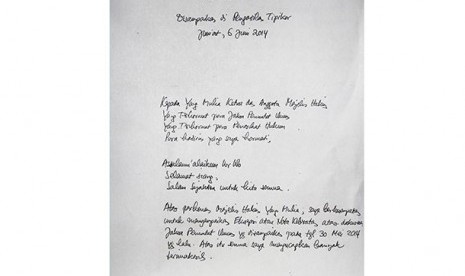 Disampaikan di Pengadilan Tipikor
Jum'at, 6 Juni 2014
Kepada Yang Mulia Ketua dan Anggota Majelis Hakim
Yang Terhormat para Jaksa Penuntut Umum
Yang Terhormat para Penasihat Hukum
Para hadirin yang saya hormati,
Assalamu'alaikum Wr Wb
Selamat siang,
Salam Sejahtera untuk kita semua.
Atas perkenan Majelis Hakim Yang Mulia, saya berkesempatan
untuk menyampaikan Eksepsi atau Nota Keberatan, atas dakwaan
Jaksa Penuntut Umum yg disampaikan pada tgl 30 Mei 2014
yg lalu. Atas itu semua saya mengucapkan banyak
terimakasih.